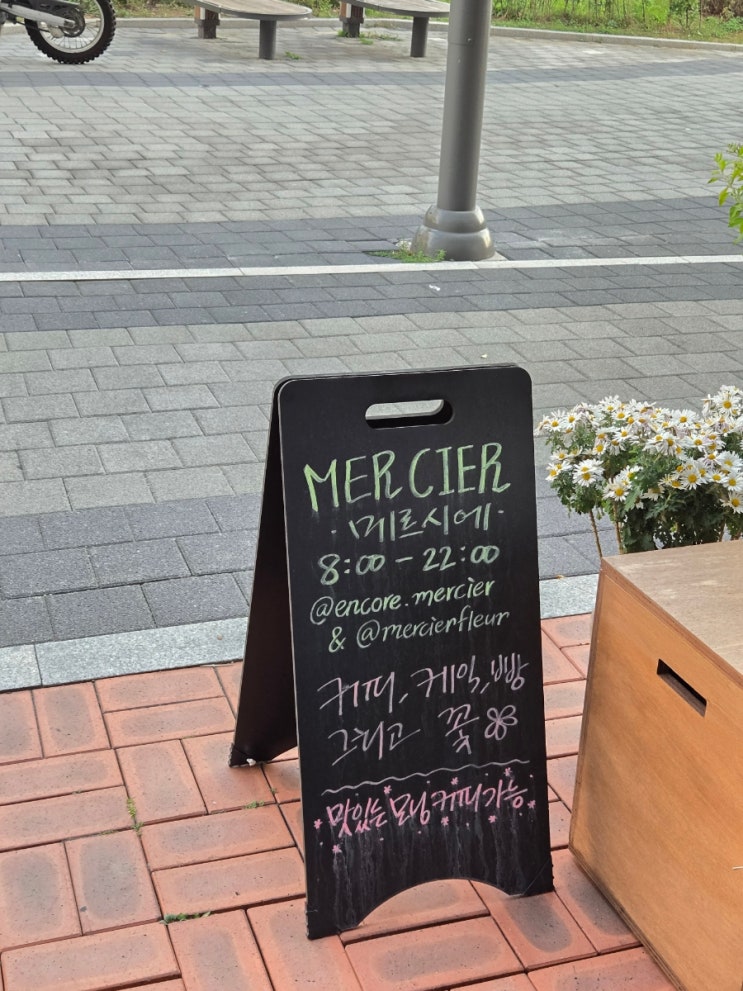 MERCIER
·메르시에·
8:00 - 22:00
@encore.mercier
& @mercierfleur
커피, 케익, 빵
그리고 꽃
맛있는 모닝커피 가능